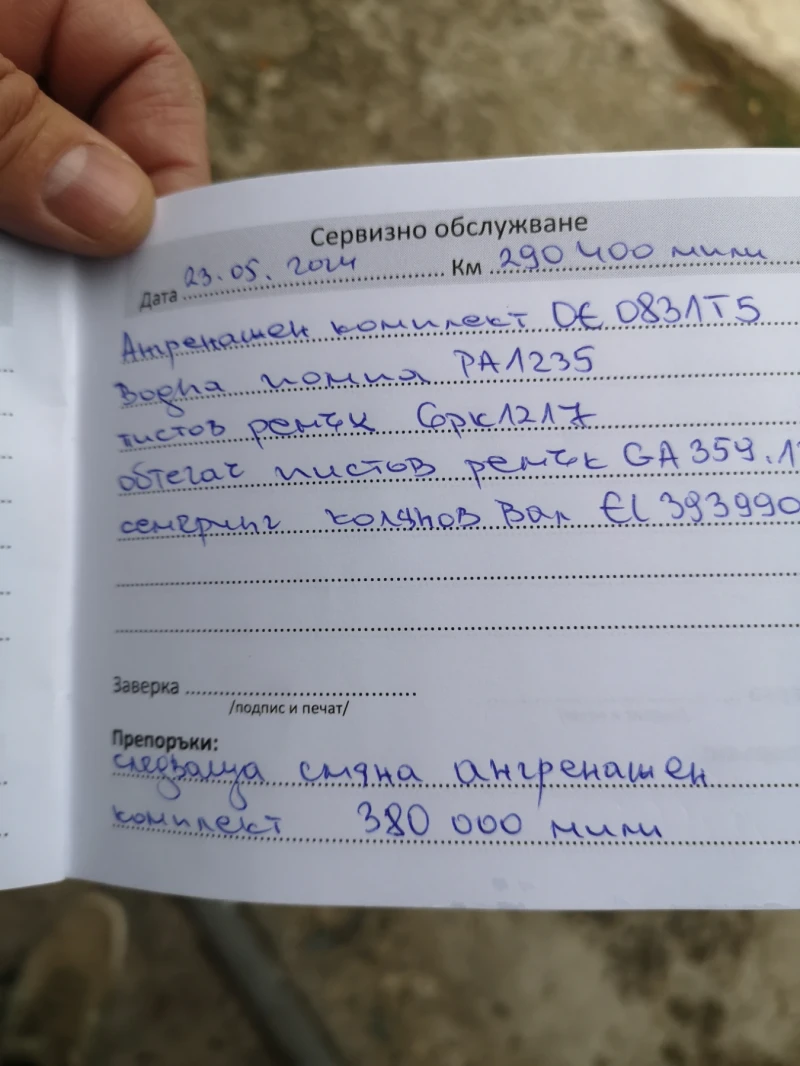 Сервизно обслужване
Дата 23.05.2024 Км 290 400 мили
Ангренашен комплект DE 0831T5
Водна помпа PA1235
пистов ремък 6pk1217
обтегач пистов ремък GA359.1
семеринг колянов вал El 393990
Заверка
/подпис и печат/
Препоръки:
следваща смяна ангренашен
комплект 380 000 мили